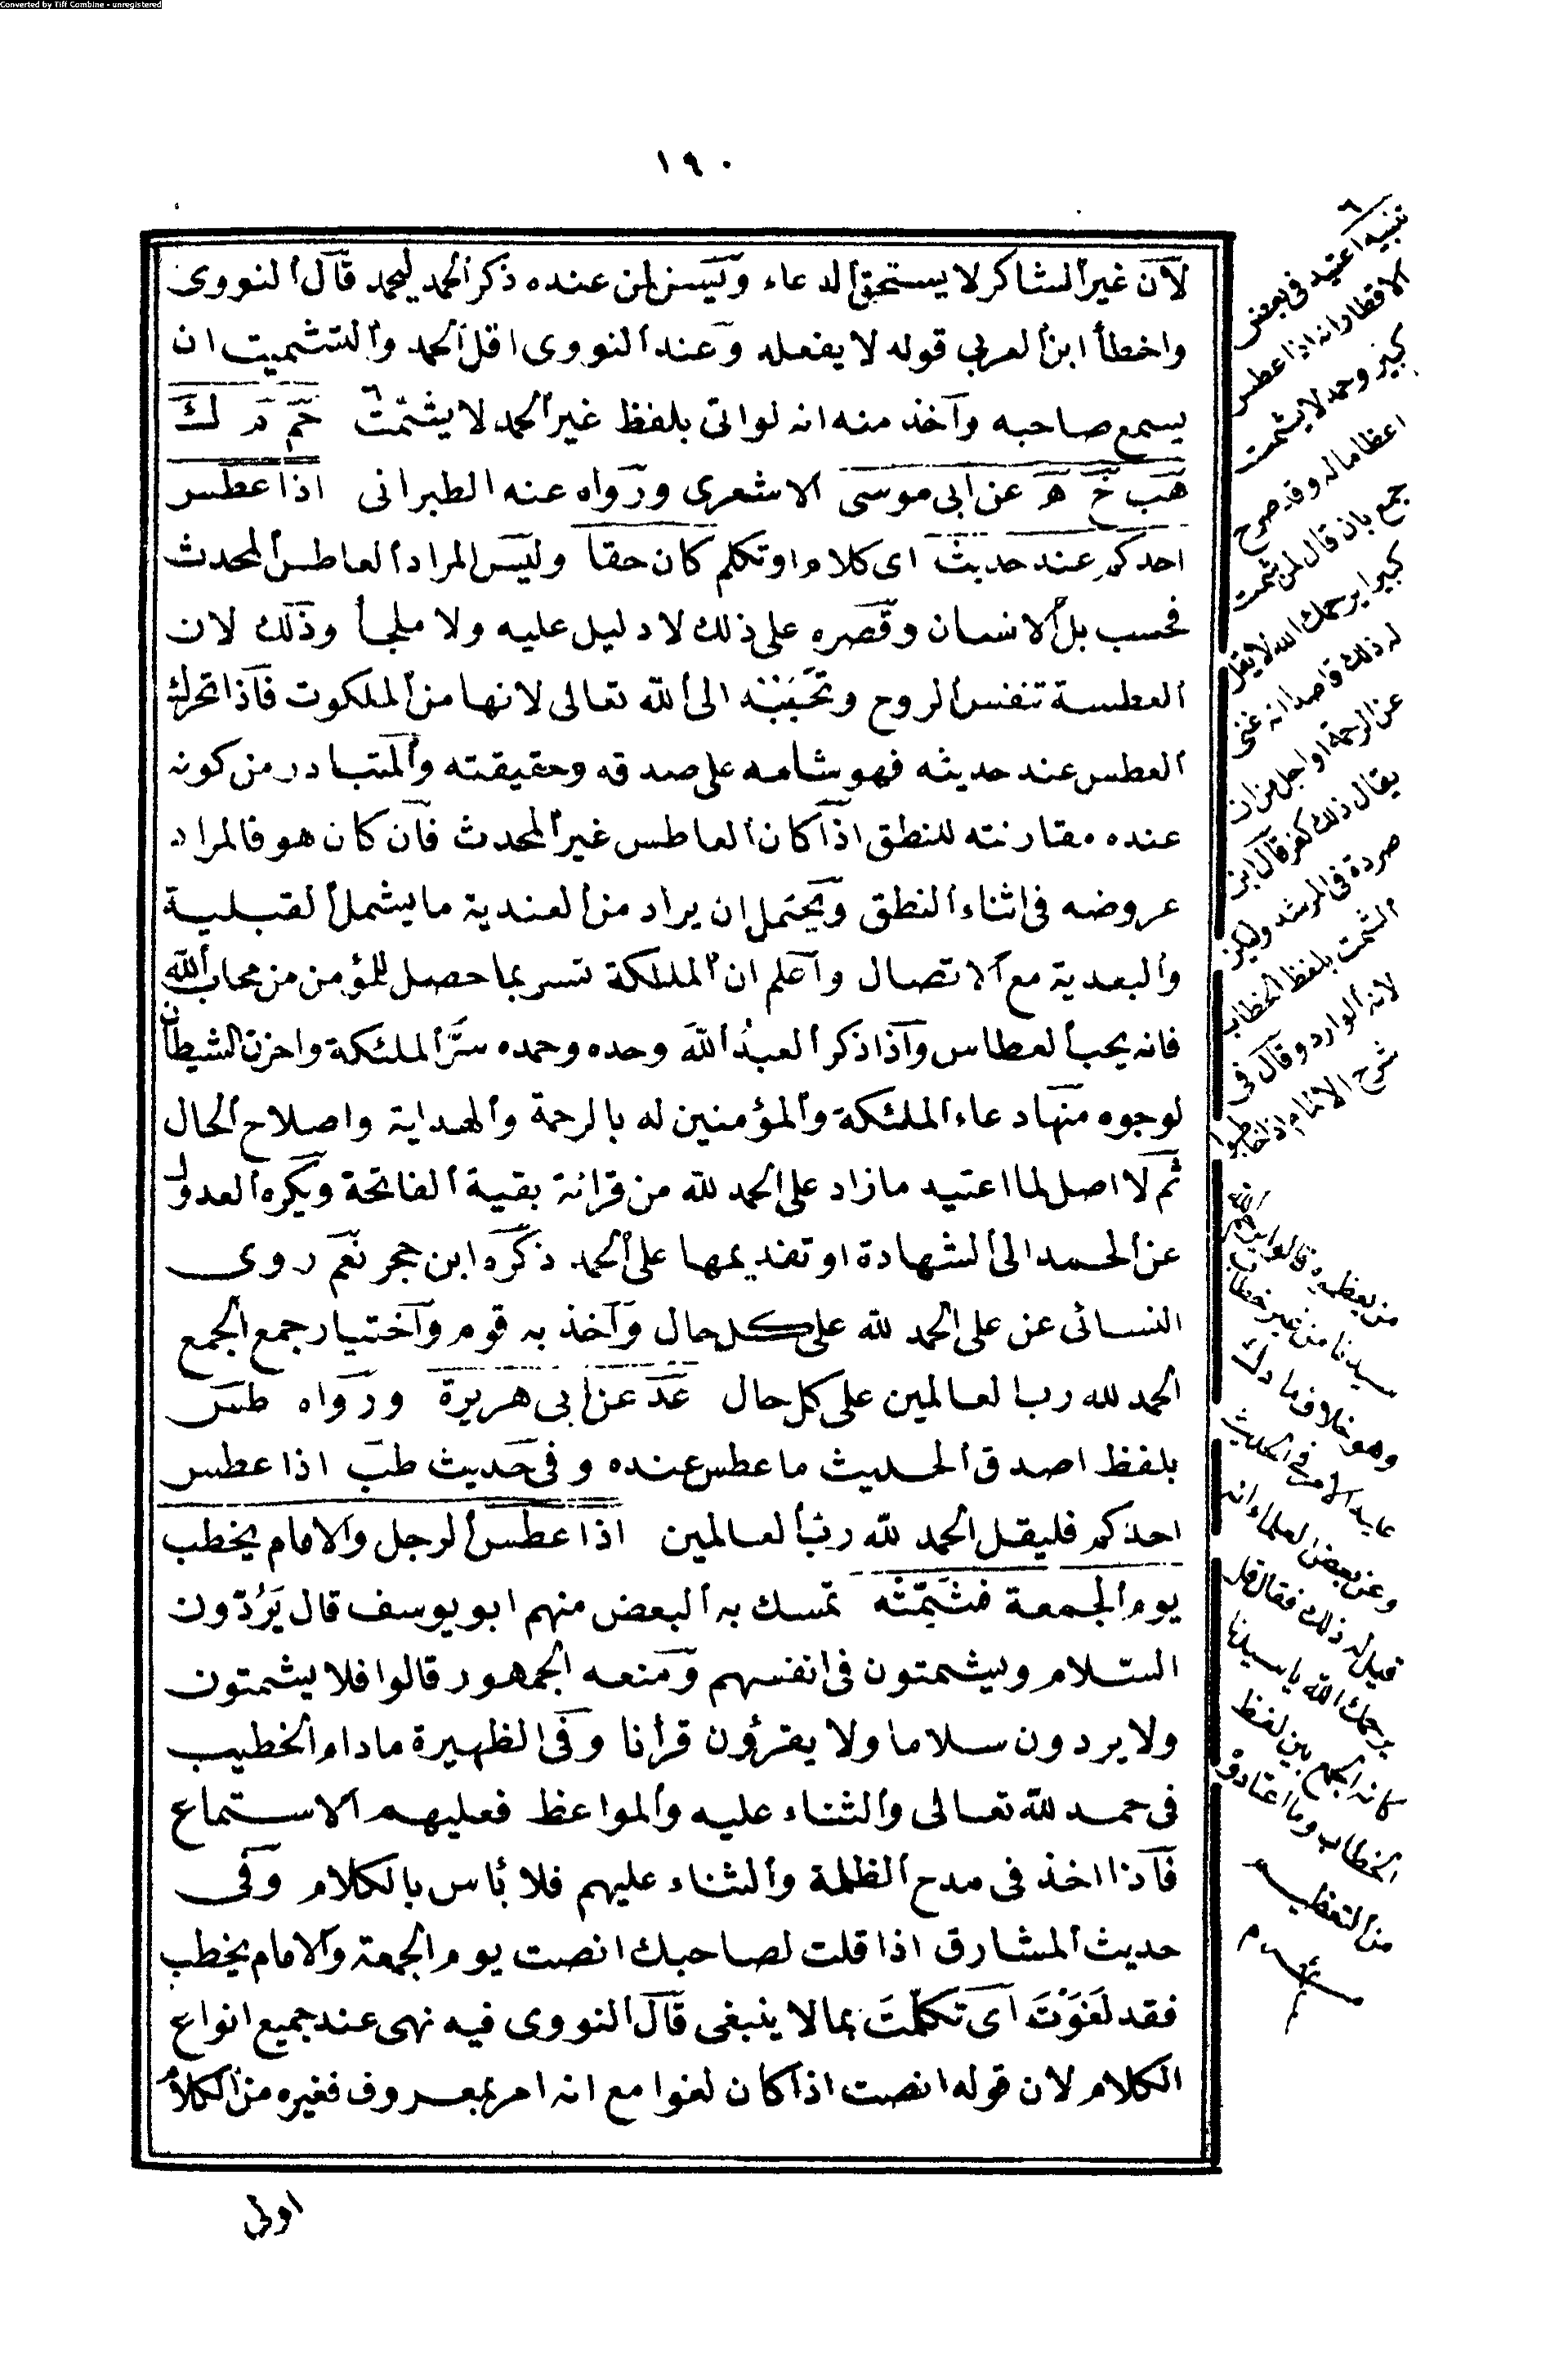 Converted by Tiff Combine - unregistered
١٩٠
لان غير الشاكر لا يستحق الدعاء ويسن لمن عنده ذكر الحمد ليحمد قال النووى
واخطأ ابن العربى قوله لا يفعله وعند النووى اقل الحمد والتشميت ان
يسمع صاحبه وآخذ منه انه لو اتى بلفظ غير الحمد لا يشمّتُ ٦ حم م ك
هب خ ه عن ابى موسى الاشعرى ورواه عنه الطبرانى اذا عطس
احدكم عند حديث اى كلام او تكلم كان حقا وليس المراد العاطس المحدث
فحسب بل الانسان وقصره على ذلك لا دليل عليه ولا ملجأ وذلك لان
العطسة تنفس الروح وتحببه الى الله تعالى لانها من الملكوت فاذا تحرك
العطس عند حديثه فهو شاهد على صدقه وحقيقته والمتبادر من كونه
عنده مقارنته للنطق اذا كان العاطس غير المحدث فان كان هو فالمراد
عروضه فى اثناء النطق ويحتمل ان يراد من العندية ما يشمل القبلية
والبعدية مع الاتصال واعلم ان الملئكة تسر بما حصل للمؤمن من محاب الله
فانه يحب العطاس واذا ذكر العبدُ اللهَ وحده وحمده سرَّ الملئكة واحزن الشيطان
لوجوه منها دعاء الملئكة والمؤمنين له بالرحمة والهداية واصلاح الحال
ثم لا اصل لما اعتيد مازاد على الحمد لله من قرائة بقية الفاتحة ويكره العدول
عن الحمد الى الشهادة او تقديمها على الحمد ذكره ابن حجر نعم روى
النسائى عن على الحمد لله على كل حال وآخذ به قوم واختيار جمع الجمع
الحمد لله رب العالمين على كل حال عد عن ابى هريرة ورواه طس
بلفظ اصدق الحديث ما عطس عنده وفى حديث طب اذا عطس
احدكم فليقل الحمد لله ربّ العالمين اذا عطس الرجل والامام يخطب
يوم الجمعة فشَمِّتْه تمسك به البعض منهم ابو يوسف قال يَرُدّون
السّلام ويشمتون فى انفسهم ومنعه الجمهور قالوا فلا يشمتون
ولا يردون سلاما ولا يقرؤن قرأنا وفى الظهيرة مادام الخطيب
فى حمد لله تعالى والثناء عليه والمواعظ فعليهم الاستماع
فاذا اخذ فى مدح الظلمة والثناء عليهم فلا بأس بالكلام وفى
حديث المشارق اذا قلت لصاحبك انصت يوم الجمعة والامام يخطب
فقد لَغَوْتَ اى تكلّمتَ بما لا ينبغى قال النووى فيه نهى عند جميع انواع
الكلام لان قوله انصت اذا كان لغوا مع انه امر بمعروف فغيره من الكلام
اولى
٦
تنبيه اعتيد فى بعض
الاقطار انه اذا عطس
كبير وحمد لا يشمت
اعظاما له وقد صرح
جمع بان قال لمن شمت
كبيرا يرحمك الله لا يقل
له ذلك قاصدا انه غنى
عن الرحمة او اجل من ان
يقال ذلك كفر قال ابن
صردة فى المرشد وليكن
الشمت بلفظ الخطاب
لانه الوارد وقال فى
شرح الالمام اذا خاطبوا
من يعظمونه قالوا يرحم الله
سيدنا من غير خطاب
وهو خلاف ما دلت
عليه الامر فى الحديث
وعن بعض العلماء انه
قيل له ذلك فقال قل
يرحمك الله يا سيدنا
كانه الجمع بين لفظ
الخطاب وما اعتادوه
من التعظيم